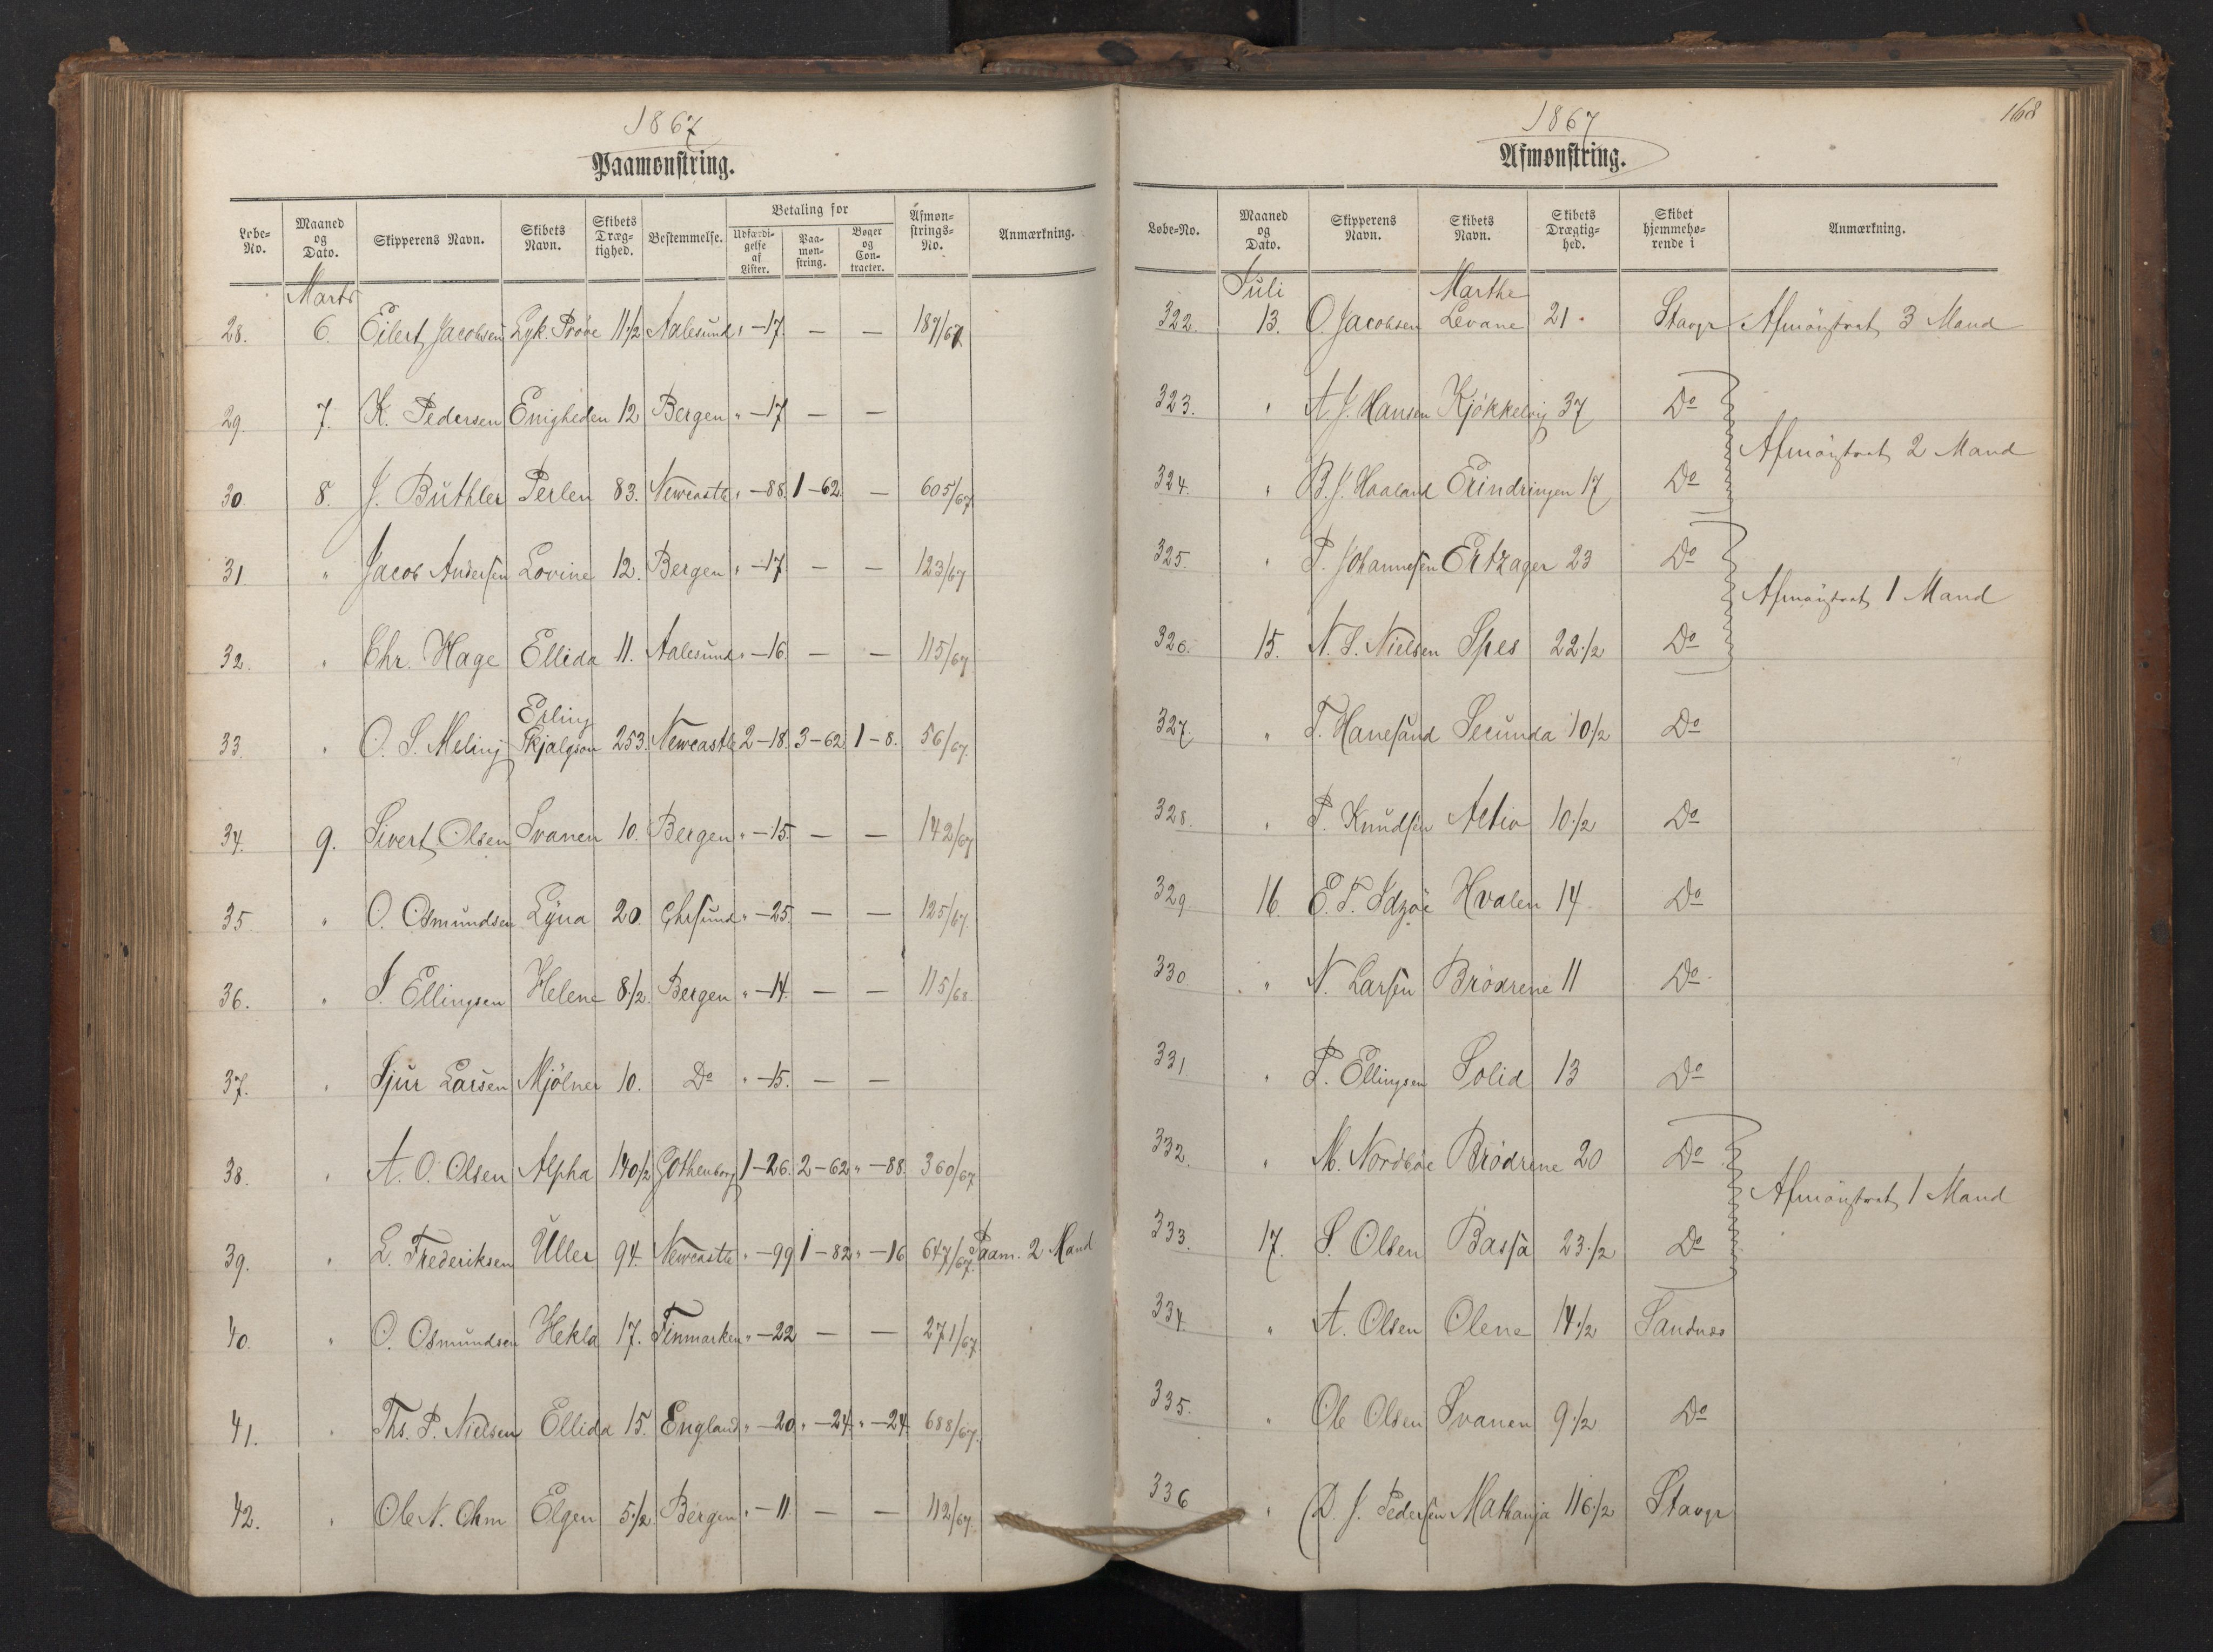 1867
Paamønstring.
Løbe-No. | Maaned og Dato. | Skipperens Navn. | Skibets Navn. | Skibets Dræg-tighed. | Bestemmelse. | Betaling for | Udfærdi-gelse af Lister. | Paa-møn-string. | Bøger og Con-tracter. | Afmøn-strings-No. | Anmærkning.
Marts
28. 6. Eilert Jacobsen Lyk. Prøve 11 1/2 Aalesund " -17. — — 187/67
29. 7. K. Pedersen Enigheden 12 Bergen " -17 — —
30. 8. J. Büthler Perlen 83. Newcastle " -88. 1-62. — 605/67
31 " Jacob Andersen Lovine 12. Bergen " -17. — — 123/67
32. " Chr. Hage Ellida 11. Aalesund " -16. — — 115/67
33. " O. S. Meling Erling Skjalgson 253. Newcastle 2-18. 3-62 1-8. 56/67.
34. 9. Sivert Olsen Svanen 10. Bergen " -15. — — 142/67
35. " O. Osmundsen Lyna 20. Chrsund " -25. — — 125/67.
36. " J. Ellingsen Helene 8 1/2. Bergen " -14. — — 115/68
37. " Sjur Larsen Mjölner 10. Do " -15. — —
38. " A. O. Olsen Alpha 140 1/2 Gothenborg 1-26. 2-62 " -88. 360/67
39. " L. Frederiksen Uller 94. Newcastle " -99 1-82 " -16 647/67. Paam. 2 Mand
40. " O. Osmundsen Hekla 17. Finmarken " -22 — — 271/67.
41. " Ths. P. Nielsen Ellida 15. England " -20 " -24. " -24. 688/67.
42. " Ole N. Ohm Elgen 5 1/2 Bergen " -11. — — 112/67
168
1867
Afmønstring.
Løbe-No. | Maaned og Dato. | Skipperens Navn. | Skibets Navn. | Skibets Drægtig-hed. | Skibet hjemmehø-rende i | Anmærkning.
Juli
322. 13. O Jacobsen Marthe Levane 21. Stavgr Afmönstret 3 Mand
323. " A. J. Hansen Kjökkelvig 37 Do
Afmönstret 2 Mand
324. " B. J. Haaland Erindringen 17 Do
325. " P. Johannesen Ertzager 23 Do
Afmönstret 1 Mand
326. 15. N. S. Nielsen Spes 22 1/2 Do
327. " T. Hanesand Secunda 10 1/2 Do
328. " P. Knudsen Activ 10 1/2 Do
329 16. E. T. Idzöe Hvalen 14 Do
330. " N. Larsen Brödrene 11 Do
331 " P. Ellingsen Solid 13 Do
332. " M. Nordböe Brödrene 20 Do
Afmönstret 1 Mand
333. 17. S. Olsen Bassa 23 1/2 Do
334. " A. Olsen Olene 14 1/2 Sandnes
335. " Ole Olsen Svanen 9 1/2 Do
336 " D. J. Pedersen Mathanja 116 1/2 Stavgr